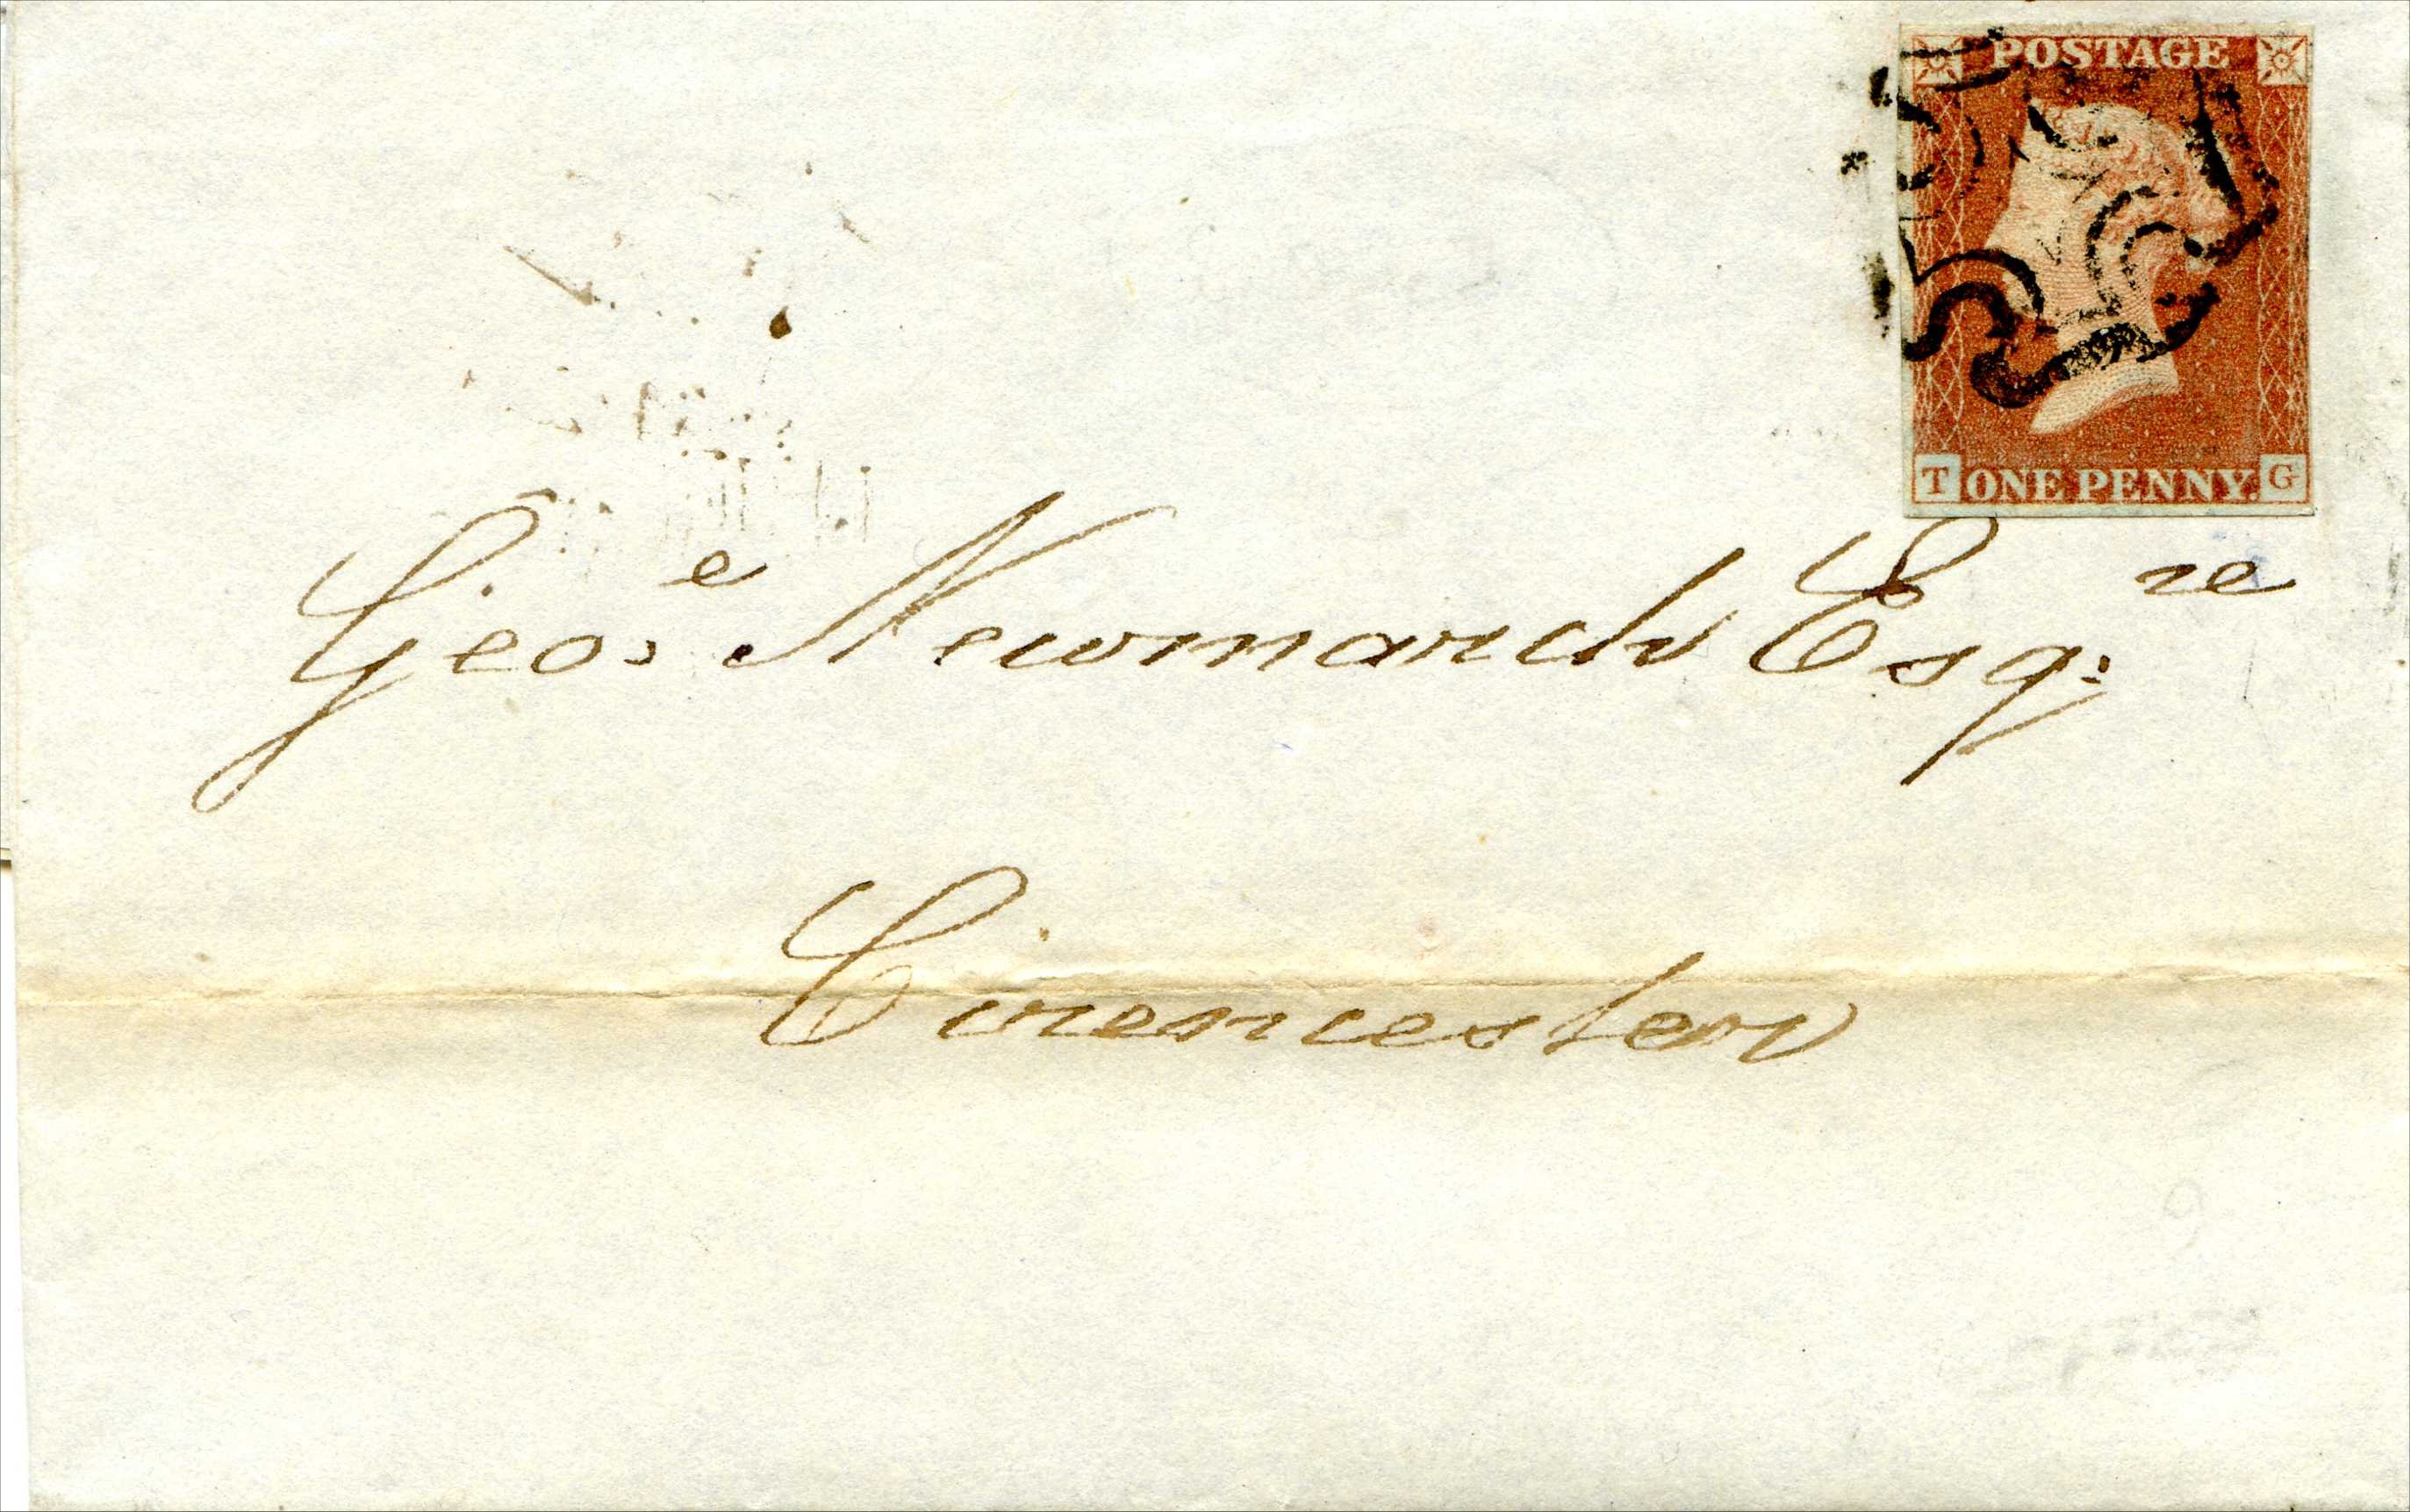 POSTAGE
T ONE PENNY. G
Geo.e Newmarch Esq.re
Cirencester